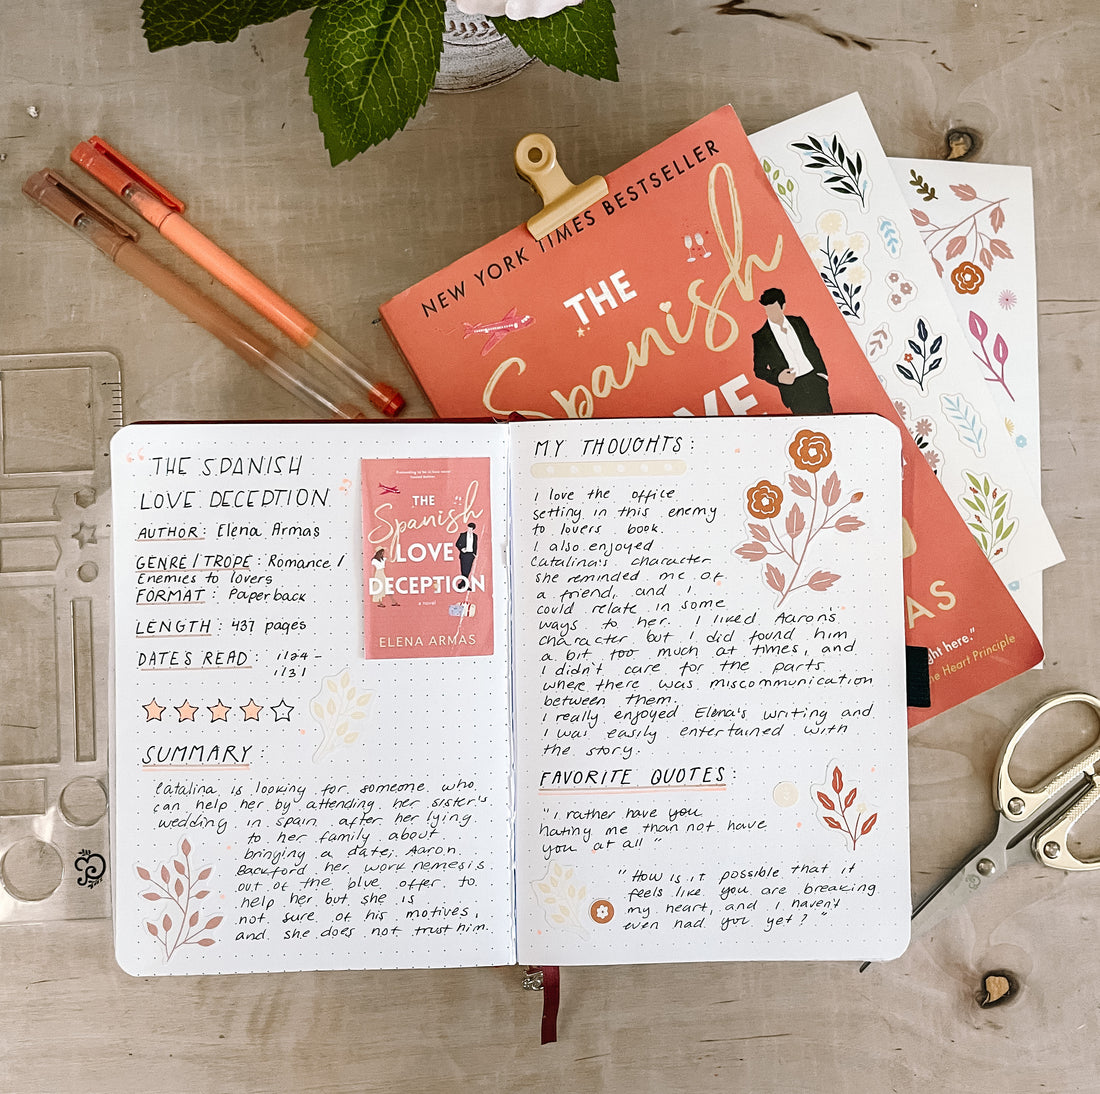 NEW YORK TIMES BESTSELLER
THE
Spanish
LOVE
AS
ght here."
he Heart Principle
"THE SPANISH
LOVE DECEPTION"
AUTHOR: Elena Armas
GENRE / TROPE: Romance /
Enemies to lovers
FORMAT: Paperback
LENGTH: 437 pages
DATES READ: 1/24 -
1/31
SUMMARY:
Catalina is looking for someone who
can help her by attending her sister's
wedding in Spain after her lying
to her family about
bringing a date; Aaron
Backford her work nemesis
out of the blue offer to
help her but she is
not sure of his motives,
and she does not trust him.
THE
Spanish
LOVE
DECEPTION
a novel
ELENA ARMAS
MY THOUGHTS:
I love the office
setting in this enemy
to lovers book.
I also enjoyed
Catalina's character
she reminded me of
a friend, and I
could relate in some
ways to her. I liked Aaron's
character but I did found him
a bit too much at times, and
I didn't care for the parts
where there was miscommunication
between them.
I really enjoyed Elena's writing and
I was easily entertained with
the story.
FAVORITE QUOTES:
"I rather have you
hating me than not have
you at all"
"How is it possible that it
feels like you are breaking
my heart, and I haven't
even had you yet?"